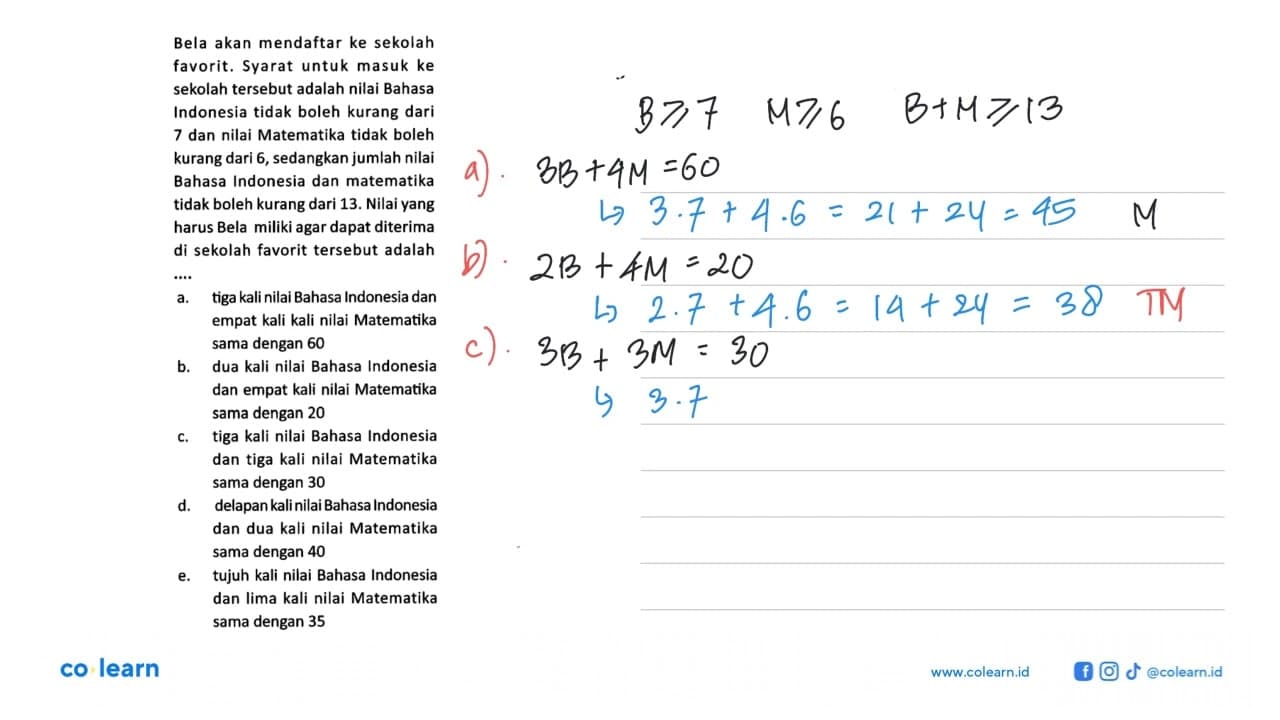 Bela akan mendaftar ke sekolah
favorit. Syarat untuk masuk ke
sekolah tersebut adalah nilai Bahasa
Indonesia tidak boleh kurang dari
7 dan nilai Matematika tidak boleh
kurang dari 6, sedangkan jumlah nilai
Bahasa Indonesia dan matematika
tidak boleh kurang dari 13. Nilai yang
harus Bela miliki agar dapat diterima
di sekolah favorit tersebut adalah
....
a. tiga kali nilai Bahasa Indonesia dan
empat kali kali nilai Matematika
sama dengan 60
b. dua kali nilai Bahasa Indonesia
dan empat kali nilai Matematika
sama dengan 20
c. tiga kali nilai Bahasa Indonesia
dan tiga kali nilai Matematika
sama dengan 30
d. delapan kali nilai Bahasa Indonesia
dan dua kali nilai Matematika
sama dengan 40
e. tujuh kali nilai Bahasa Indonesia
dan lima kali nilai Matematika
sama dengan 35
B ⩾ 7 M ⩾ 6 B + M ⩾ 13
a). 3B + 4M = 60
↳ 3.7 + 4.6 = 21 + 24 = 45 M
b). 2B + 4M = 20
↳ 2.7 + 4.6 = 14 + 24 = 38 TM
c). 3B + 3M = 30
↳ 3.7
co learn
www.colearn.id @colearn.id